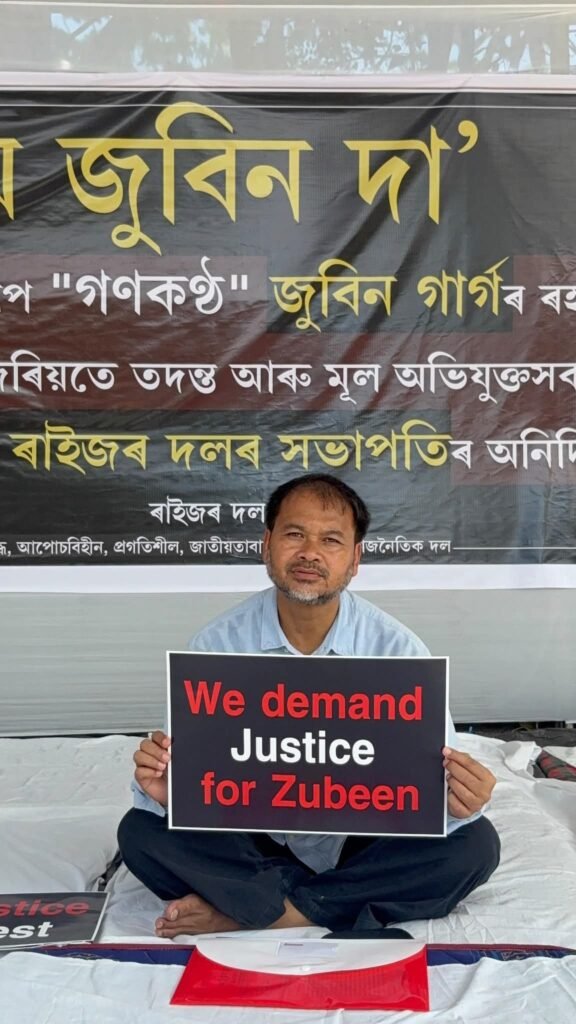 জুবিন দা’
"গণকণ্ঠ" জুবিন গাৰ্গৰ
তদন্ত আৰু মূল অভিযুক্তসক
ৰাইজৰ দলৰ সভাপতিৰ অনিৰ্দি
ৰাইজৰ দল
আপোচবিহীন, প্ৰগতিশীল, জাতীয়তাবা
ৰাজনৈতিক দল
We demand
Justice
for Zubeen
stice
est